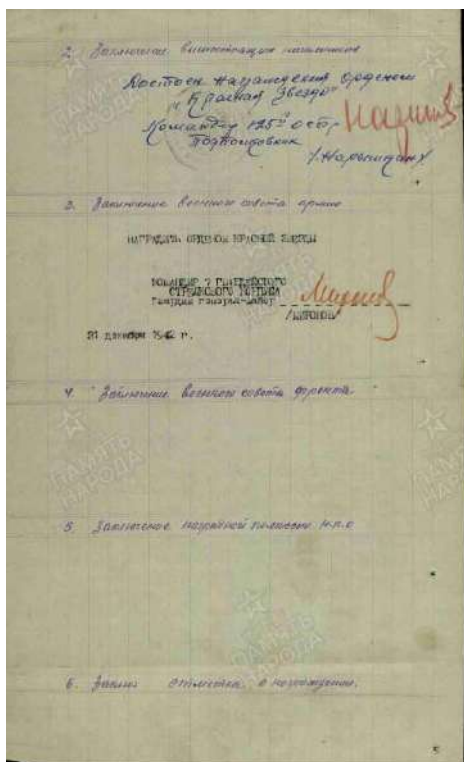 2. Заключение вышестоящих начальников
Достоен награждения орденом
"Красная Звезда"
Командир 125й остр
Подполковник
3. Заключение военного совета армии
НАГРАДИТЬ ОРДЕНОМ КРАСНОЙ ЗВЕЗДЫ
КОМАНДИР 7 ГВАРДЕЙСКОГО
СТРЕЛКОВОГО КОРПУСА
Гвардии генерал-майор
/МИРОНОВ/
21 декабря 1942 г.
4. Заключение военного совета фронта
ПАМЯТЬ
НАРОДА
5. Заключение наградной комиссии Н.К.О
ПАМЯТЬ
НАРОДА
6. отметка о награждении.
5